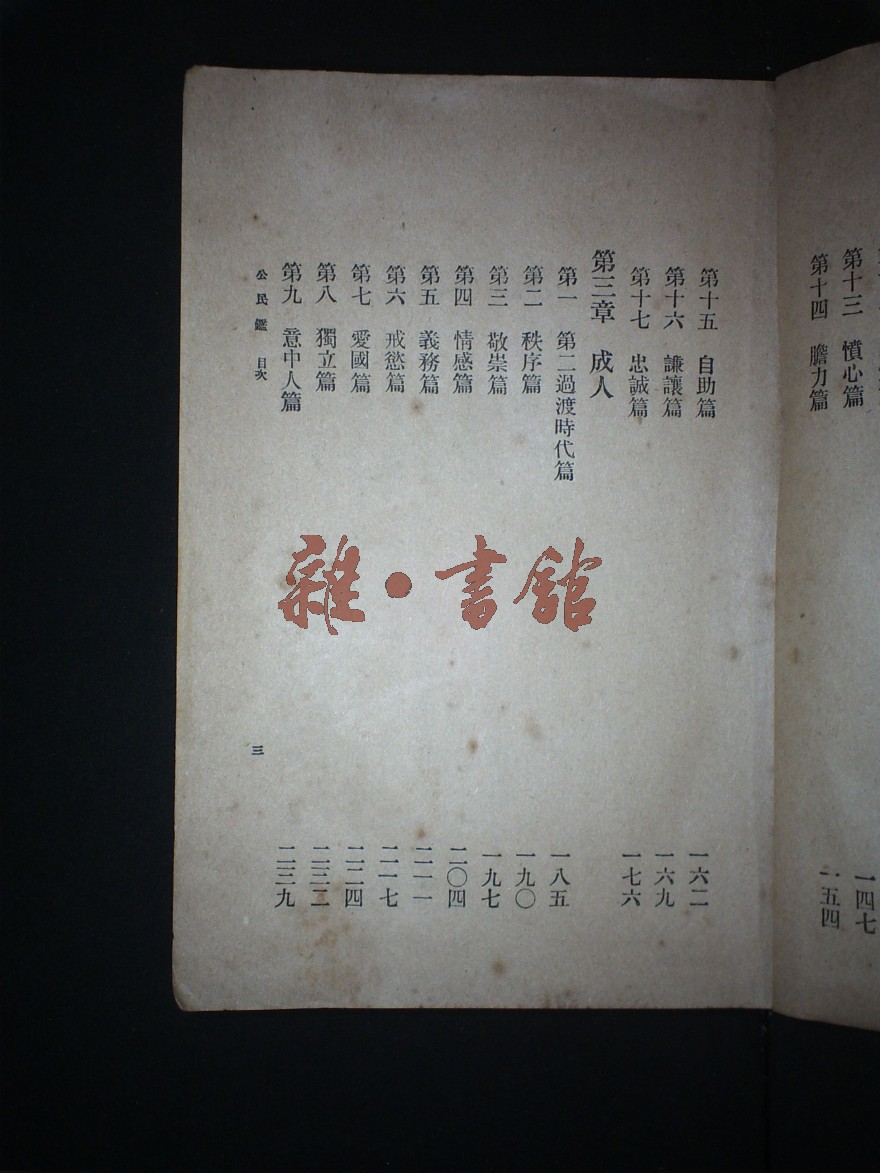 第十三 憤心篇 一四七
第十四 膽力篇 一五四
第十五 自助篇 一六二
第十六 謙讓篇 一六九
第十七 忠誠篇 一七六
第三章 成人
第一 第二過渡時代篇 一八五
第二 秩序篇 一九〇
第三 敬崇篇 一九七
第四 情感篇 二〇四
第五 義務篇 二一一
第六 戒慾篇 二一七
第七 愛國篇 二二四
第八 獨立篇 二三二
第九 意中人篇 二三九
公民鑑 目次 三
雜·書館